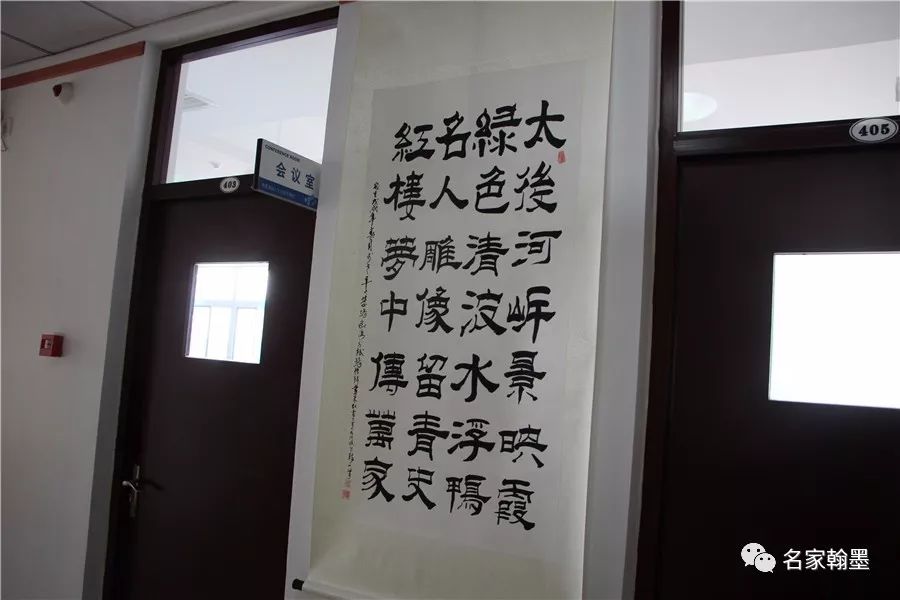 太後河岍景映霞
緑色清波水浮鴨
名人雕像留青史
紅樓夢中傳萬家
CONFERENCE ROOM
会议室
403
405
名家翰墨